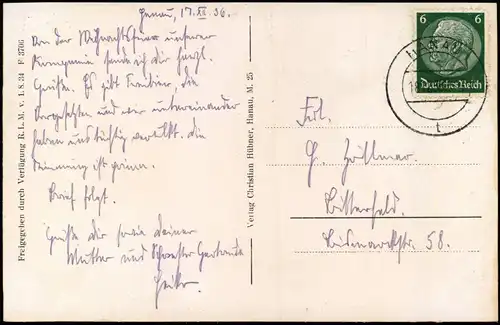 Hanau, 17. XII. 36.
Von der Weihnachtsfeier unserer
Kompanie sende ich dir herzl.
Grüße. Es gibt Freibier, die
Vorgesetzten und wir untereinander
haben uns tüchtig verulkt. Die
Stimmung ist prima.
Brief folgt.
Grüße dir sowie deiner
Mutter und Schwester Gertrude
Freigegeben durch Verfügung R. L. M. v. 1. 8. 34 F 3706
Verlag Christian Hübner, Hanau, M. 25
6 6
Deutsches Reich
HANAU
Frl.
G. Zöllner
Bitterfeld.
Bismarckstr. 58.